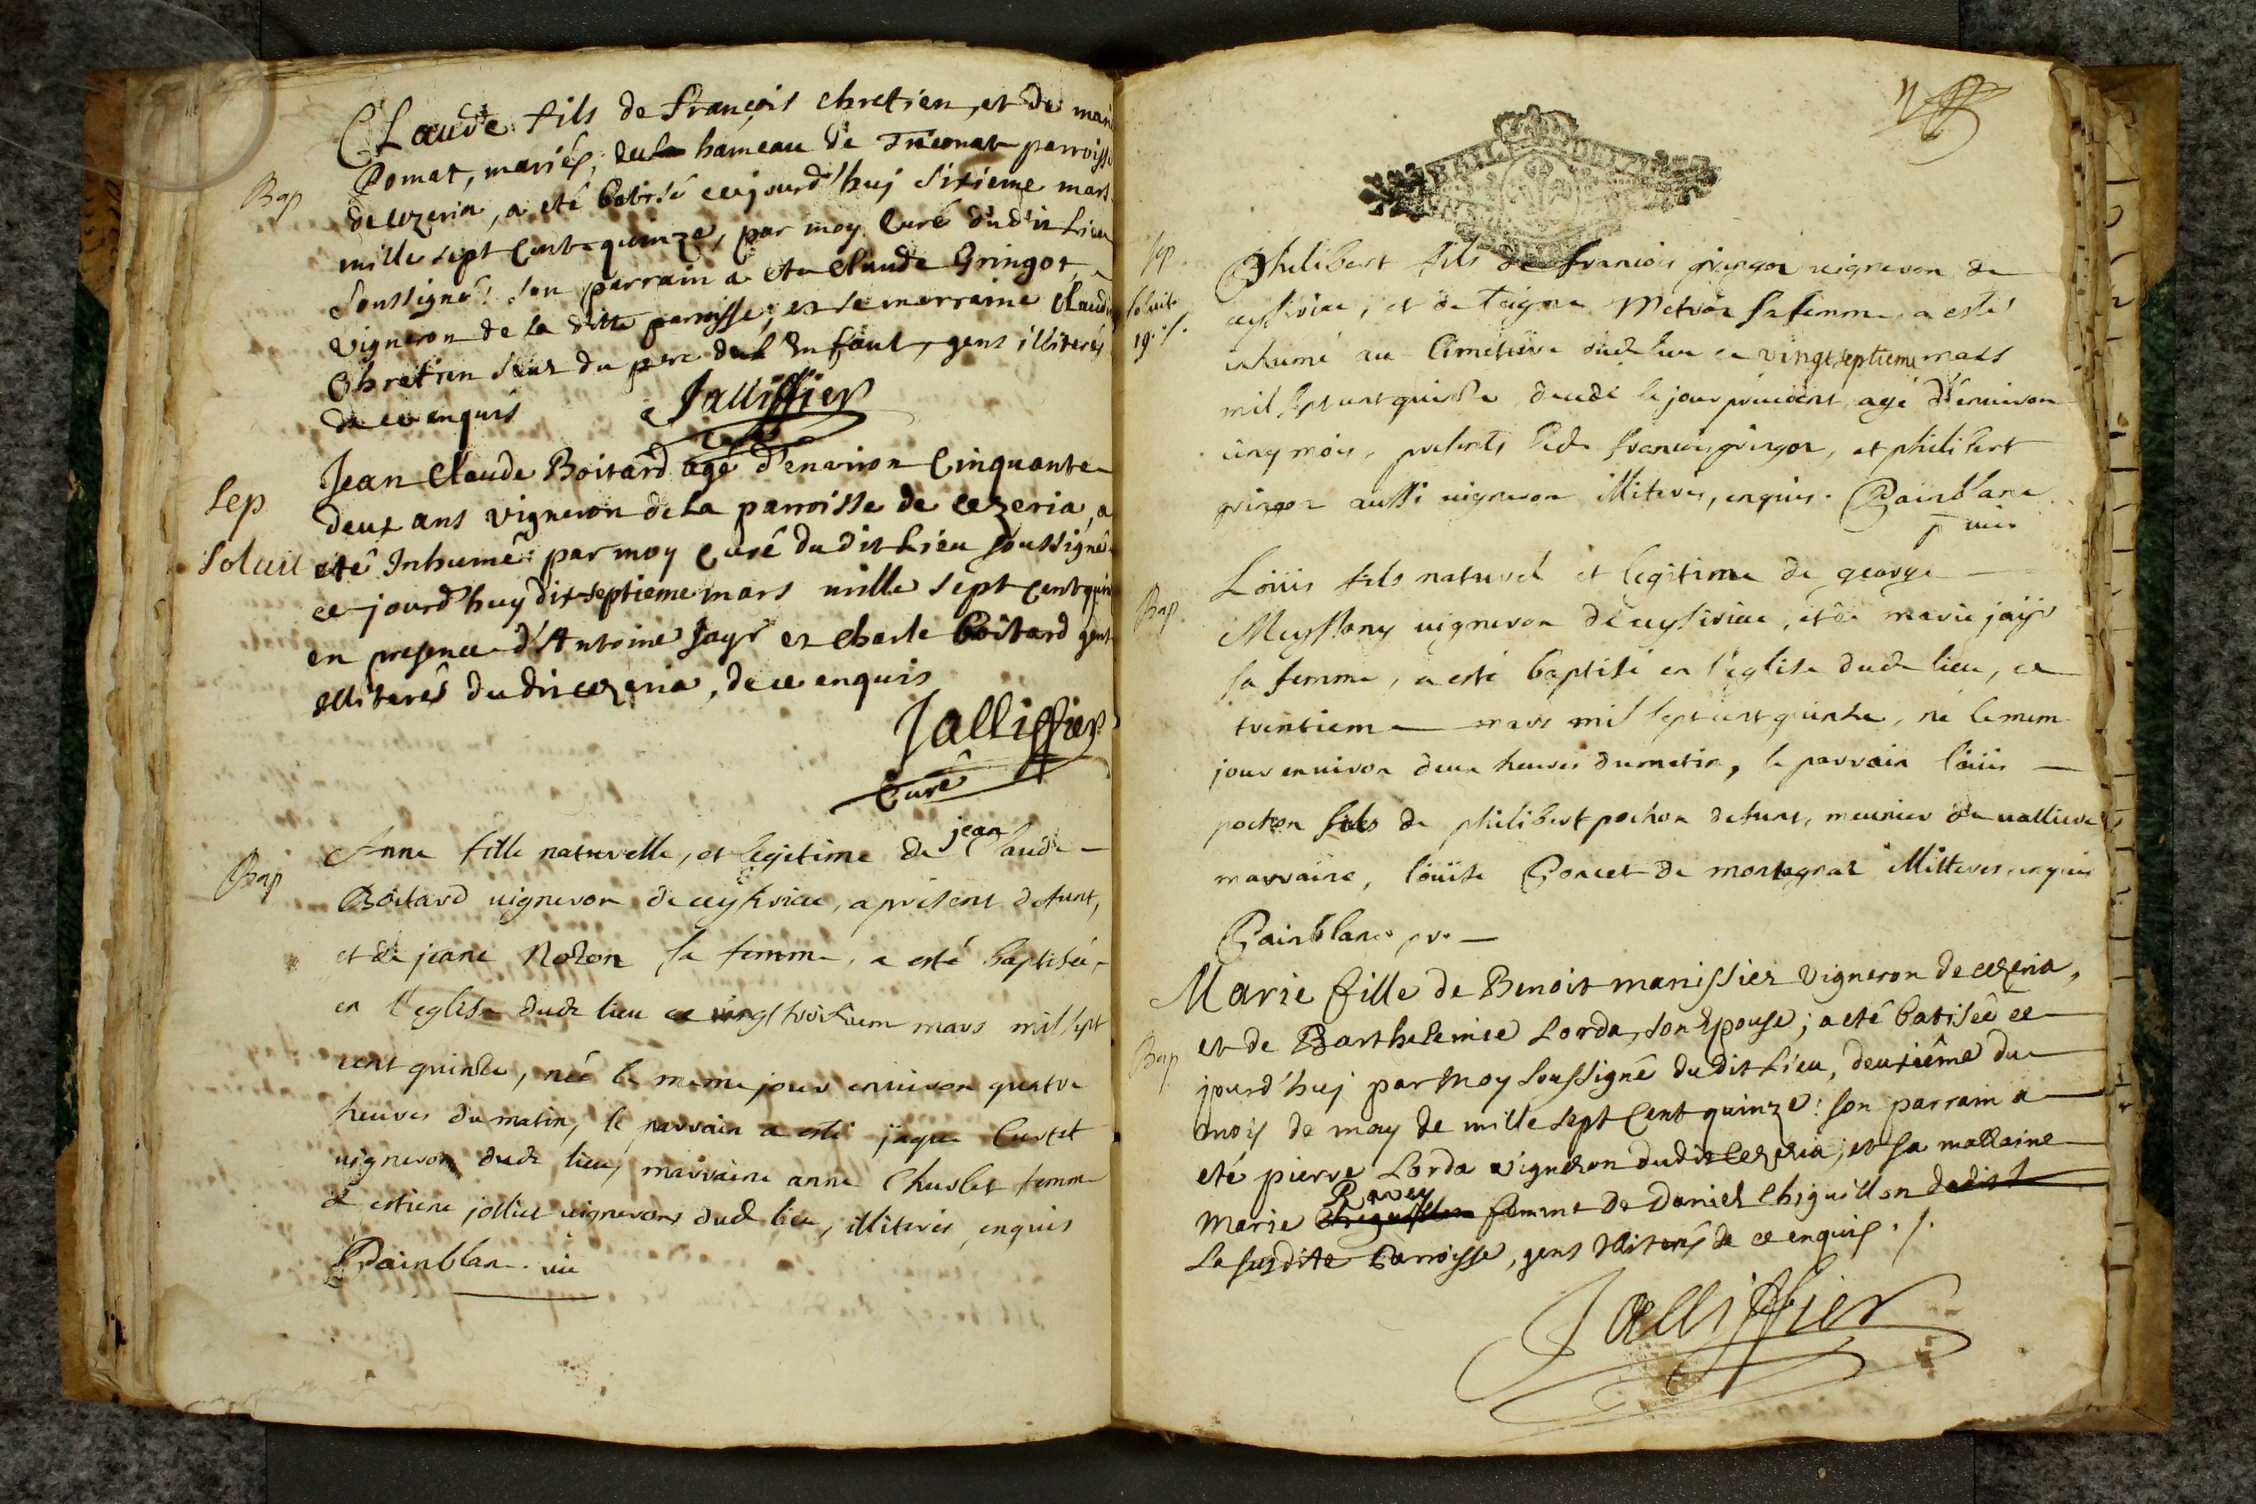 CLaude fils de François chretien, et de mari
Pomat, mariés, du hameau de Tréconat parroisse
de cezeria, a eté batisé cejourd'huj sixieme mars
Bap
mille sept cent quinze, par moy Curé dudit Lieu
soussigné: son parrain a eté Claude Gringot,
vigneron de la ditte parroisse; et se marraine Claudi
Chretien seur du pere de l'Enfant, gens illiterés
de ce enquis Jalliffier
Jean Claude Boitard agé d'environ Cinquante
Sep
deux ans vigneron de La parroisse de cezeria, a
Soluit eté Inhumé par moy Curé du dit Lieu soussigné
ce jourd'huy dix septieme mars mille sept cent quin
en presence d'Antoine Jayr et Charle Boitard gent
illiterés dudit cezeria, de ce enquis
Jalliffier
Curé
Anne fille naturelle, et legitime de jean Claude
Bap
Boitard vigneron de ceysiriae, a present defunt,
et de jeane Rodon sa femme, a esté baptisée
en l'eglise dudt lieu ce vingt troisiem mars mil sept
cent quinse, née le meme jour environ quatre
heures du matin, le parrain a esté jaque Curtet
vigneron dudt lieu, marraine anne Churlet femme
d'estiene jolliet vignerons dudt lieu, illiterés, enquis
Painblan. vic
Sep
Philibert fils de francois gringoz vigneron de
soluit
19 s.
ceysiriae, et de Taigne Metraz sa femme, a esté
inhumé au Cimetiere dudt lieu ce vingt septieme mars
mil sept cent quinse decedé le jour precedent agé d'environ
cinq mois, presents ledt francois gringoz, et philibert
gringoz aussi vigneron illiteres, enquis. Painblanc
p vic
Loüis fils naturel et legitime de george
Bap
Meyssony vigneron de ceysiriae, et de marie jayr
sa femme, a esté baptisé en l'eglise dudt lieu, ce
trentieme mars mil sept cent quinse, né le mem
jour environ deux heures du matin, le parrain loüis
pochon fils de philibert pochon defunt, meunier de valliere
marraine, loüise Poncet de montagnat illitteres, enquis
Painblanc pr.
Marie fille de Benoit manissier vigneron de cezeria,
et de Barthelemie Lorda, son Epouse; a eté batisée ce
Bap
jourd'huj par moy soussigné dudit Lieu, deuxiême du
mois de may de mille sept Cent quinze: son parrain a
eté pierre Lorda vigneron dudit Cezeria; et sa mallaine
marie Ravey femme de Daniel Chiguillon
La susdite Parroisse, gens illiterés de ce enquis ./.
Jalliffier